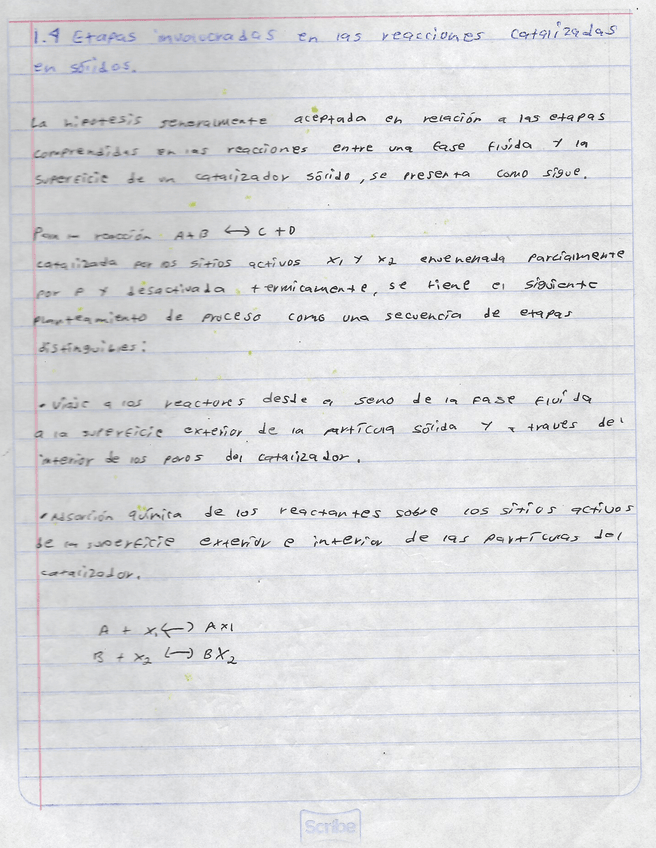 1.4 Etapas involucradas en las reacciones catalizadas
en sólidos.
La hipotesis generalmente aceptada en relación a las etapas
comprendidas en las reacciones entre una fase fluida y la
superficie de un catalizador sólido, se presenta como sigue.
Para la reacción A+B ⟷ C+D
catalizada por los sitios activos X1 y X2 envenenada parcialmente
por P y desactivada termicamente, se tiene el siguiente
planteamiento de proceso como una secuencia de etapas
distinguibles:
• Viaje a los reactores desde el seno de la fase fluída
a la superficie exterior de la partícula sólida y a través del
interior de los poros del catalizador.
• Adsorción química de los reactantes sobre los sitios activos
de la superficie exterior e interior de las partículas del
catalizador.
A + X1 ⟷ AX1
B + X2 ⟷ BX2
Scribe